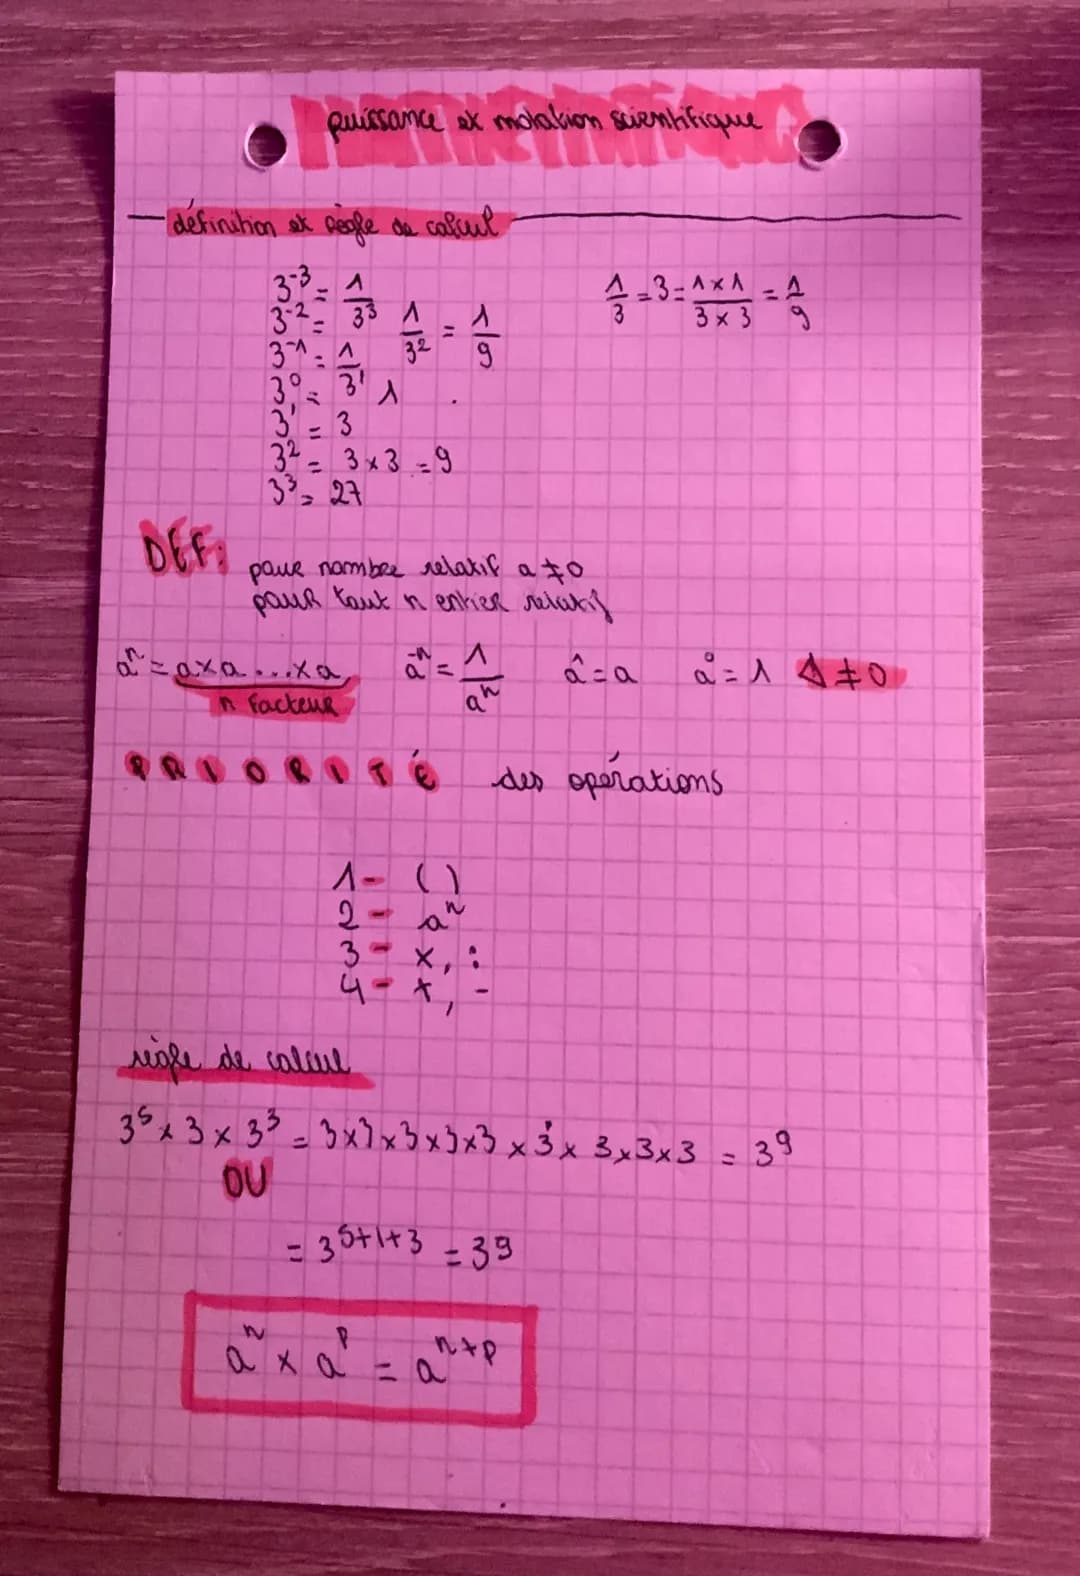 puissance et notation scientifique
définition et règle de calcul
3⁻³ = 1/3³
3⁻² = 1/3² = 1/9
3⁻¹ = 1/3¹
3⁰ = 1
3¹ = 3
3² = 3 x 3 = 9
3³ = 27
1/3 = 3 = 1 x 1 / 3 x 3 = 1/9
DEF:
pour nombre relatif a ≠ 0
pour tout n entier relatif
aⁿ = a x a ... x a a⁻ⁿ = 1/aⁿ a¹ = a a⁰ = 1 ≠ 0
n facteur
PRIORITÉ des opérations
1 - ( )
2 - aⁿ
3 - x, :
4 - +, -
règle de calcul
3⁵ x 3 x 3³ = 3 x 3 x 3 x 3 x 3 x 3 x 3 x 3 x 3 = 3⁹
OU
= 3⁵⁺¹⁺³ = 3⁹
aⁿ x aᵖ = aⁿ⁺ᵖ